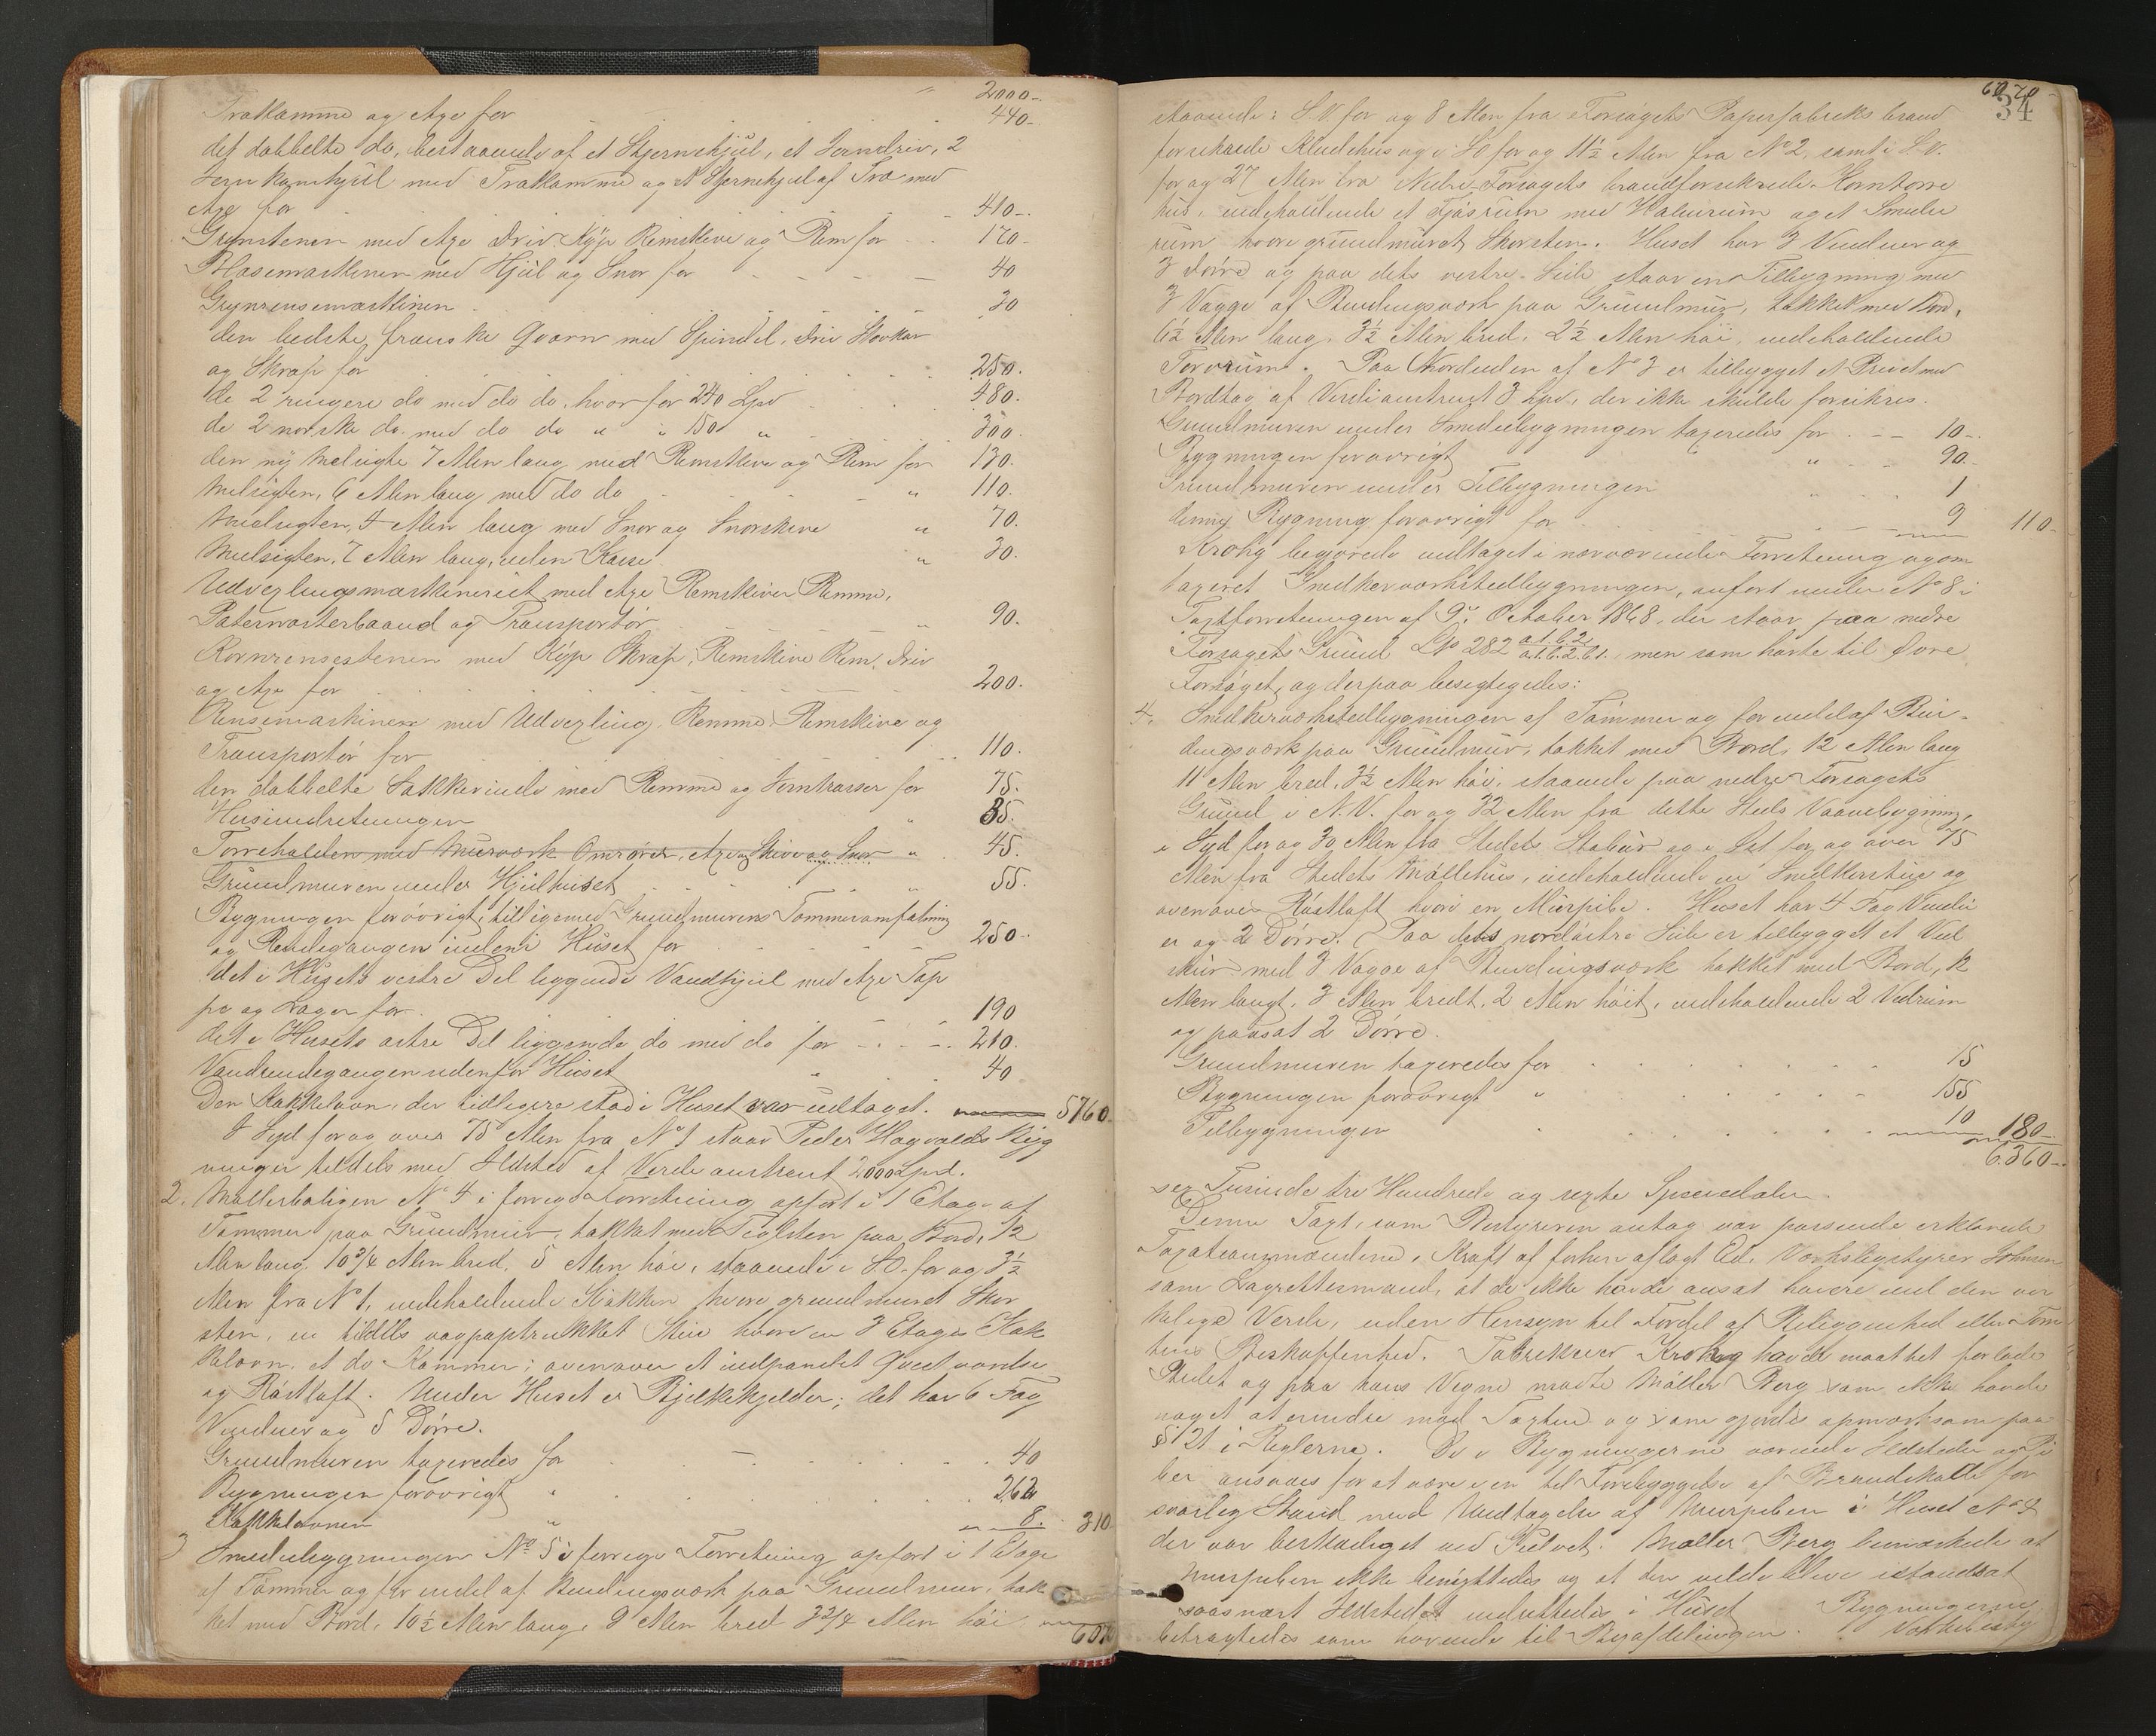 " 2000-.
Trækamme og Axe for 440-
det dobbelte do, bestaaende af et Stjernehjul, et Jerndriv, 2
Jern Kamhjul med Trækamme og et Stjernehjul af Træ med
Axe for 410-.
Grynstenen med Axe Driv, Kop Remskive og Rem for 170-
Blæsemaskinen med Hjul og Snor for 40
Grynrensemaskinen 30
den bedste franske Qværn med Spindel, Driv Skovkar
og Skrap for 250.
de 2 ringere do med do do, hver for 240 Spd 480.
de 2 norske do. med do do " " 150 " 300.
den ny Melsigte 7 Alen lang med Remskive og Rem for 130.
Melsigten, 6 Alen lang med do do " 110.
Melsigten, 4 Alen lang med Snor og Snorskive " 70.
Melsigten, 7 Alen lang, uden Kasse " 30.
Udvexlingsmaskineriet med Axe Remskiver Remme,
Paternosterbaand og Transportør " 90.
Kornrensestenen med Kop Skrap, Remskive Rem, Driv
og Axe for 200.
Rensemaskinen med Udvexling, Remme Remskive og
Transportør for 110.
den dobbelte Sækkevinde med Remme og Jerntrasser for 75.
Husindretningen " 35.
Tørrehelden med Murværk Omrører, Axe og Skive og Snor " 45.
Grundmuren under Hjulhuset " 55.
Bygningen forøvrigt, tilligemed Grundmurens Tømmeromfatning
og Rendegangen indeni Huset for 250-.
det i Husets vestre Del liggende Vandhjul med Axe Tap
pe og Lager for 190
det i Husets østre Del liggende do med do for 210.
Vandrendegangen udenfor Huset " 40
Den Kakkelovn, der tidligere stod i Huset var udtaget. 5760.
I Syd for og over 75 Alen fra No 1 staar Peder Hagvalds Byg
ninger tildels med Ildsted af Værdi omtrent 2,000 Spd.
2. Møllerboligen No 4 i forrige Forretning opført i 1 Etage af
Tømmer paa Grundmur, tækket med Teglsten paa Bord, 12
Alen lang, 10 3/4 Alen bred, 5 Alen høi, staaende i SO. for og 3 1/2
Alen fra No 1, indeholdende Kjøkken hvori grundmuret Skor
sten, en tildels vægpaptrukket Stue hvori en 3 Etages Kak
kelovn, et do Kammer; ovenover et indpanelet Qvistværelse
og Røstloft. Under Huset er Bjelkekjelder; det har 6 Fag
Vinduer og 5 Dørre.
Grundmuren taxeredes for 40
Bygningen forøvrigt " 262
Kakkelovnen " 8. 310
3 Smedebygningen No 5 i forrige Forretning opført i 1 Etage
af Tømmer og for endel af Bindingsværk paa Grundmur, tæk
ket med Bord, 10 1/2 Alen lang, 9 Alen bred 3 3/4 Alen høi
6070
6070
34
staaende i S.V. for og 8 Alen fra Forsøgets Papirfabriks brand
forsikrede Kludehus og i SO for og 11 1/2 Alen fra No 2, samt i S.V.
for og 27 Alen fra Nedre Forsøgets brandforsikrede Korntørre
hus, indeholdende et Fjøsrum med Halmrum og et Smede
rum hvori grundmuret Skorsten. Huset har 3 Vinduer og
3 Dørre og paa dets vestre Side staar en Tilbygning med
3 Vægge af Bindingsværk paa Grundmur, tækket med Bord,
6 1/2 Alen lang, 3 1/2 Alen bred, 2 1/2 Alen høi, indeholdende
Torvrum. Paa Nordenden af No 3 er tilbygget et Privet med
Bordtag af Værdi omtrent 3 Spd, der ikke skulde forsikres.
Grundmuren under Smedebygningen taxeredes for 10-.
Bygningen forøvrigt " 90-
Grundmuren under Tilbygningen " 1
denne Bygning forøvrigt for 9 110-
Krohg begjærede indtaget i nærværende Forretning og om
taxeret Snedkerværkstedbygningen, anført under No 8 i
Taxtforretningen af 9de October 1868, der staar paa nedre
Forsøgets Grund LNo 282 a.1.b.2. a.1.b.2.b.1., men som hørte til Øvre
Forsøget, og derpaa besigtigedes:
4. Snedkerværkstedbygningen af Tømmer og for endel af Bin-
dingsværk paa Grundmur, tækket med Bord, 12 Alen lang
11 Alen bred, 3 1/2 Alen høi, staaende paa nedre Forsøgets
Grund i N.V. for og 32 Alen fra dette Steds Vaanebygning,
i Syd for og 30 Alen fra Stedets Stabur og i Øst for og over 75
Alen fra Stedets Møllehus, indeholdende en Snedkerstue og
ovenover Røstloft hvori en Murpibe. Huset har 4 Fag Vindu
er og 2 Dørre. Paa dets nordøstre Side er tilbygget et Ved
skur med 3 Vægge af Bindingsværk tækket med Bord, 12
Alen langt, 3 Alen bredt, 2 Alen høit, indeholdende 2 Vedrum
og paasat 2 Dørre.
Grundmuren taxeredes for 15
Bygningen forøvrigt " 155
Tilbygningen 10 180-
6.360-.
sex Tusinde tre Hundrede og sexti Speciedaler.
Denne Taxt, som Bestyreren antog var passende erklærede
Taxationsmændene, i Kraft af forhen aflagt Ed, Værksbestyrer Johnsen
som Lagrettesmand, at de ikke havde ansat høiere end den vir
kelige Værdi, uden Hensyn til Fordel af Beliggenhed eller Tom
tens Beskaffenhed. Fabrikeier Krohg havde maattet forlade
Stedet og paa hans Vegne mødte Møller Berg som ikke havde
noget at erindre mod Taxten og som gjordes opmærksom paa
§ 21 i Reglerne. De i Bygningerne værende Ildsteder og Pi
ber ansaaes for at være i en til Forebyggelse af Brandskade for
svarlig Stand med Undtagelse af Murpiben i Huset No 4
der var beskadiget ved Pulvet. Møller Berg bemærkede at
Murpiben ikke benyttedes og at den vilde blive istandsat
saasnart Ildstedet indrettedes i Huset Bygningerne
betragtedes som hørende til Byafdelingen.